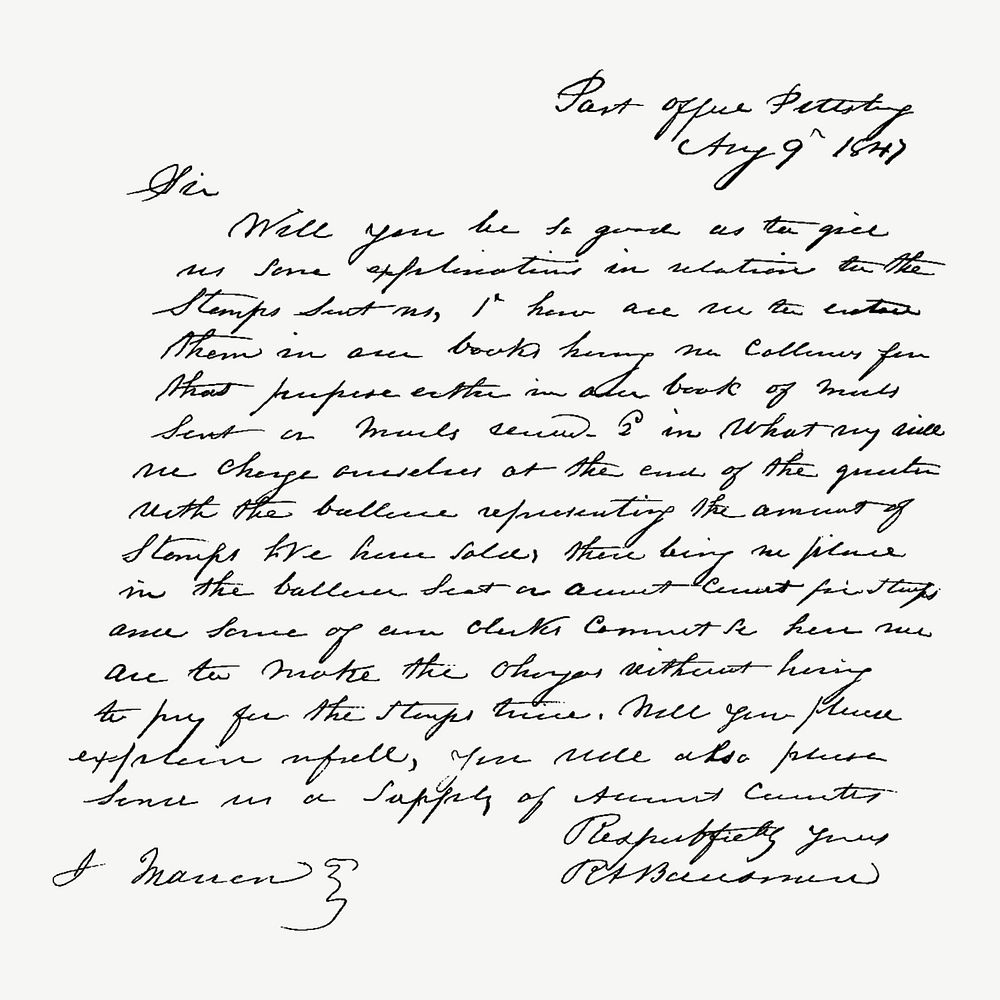 Post office Pittsburg
Aug 9th 1847
Sir
Will you be so good as to give
us some explanations in relation to the
Stamps sent us, 1st how are we to enter
them in our books having no Collums for
that purpose either in our book of mails
sent or mails received - 2 in What way will
we charge ourselves at the end of the quarter
with the ballance representing the amount of
Stamps We have sold, there being no place
in the ballance Sheet or for Stamps
and some of our clerks to know how we
are to make the charges without having
to pay for the Stamps twice. Will you please
explain us full, you will also please
send us a Supply of Account Currents
Respectfully yours
J Marron